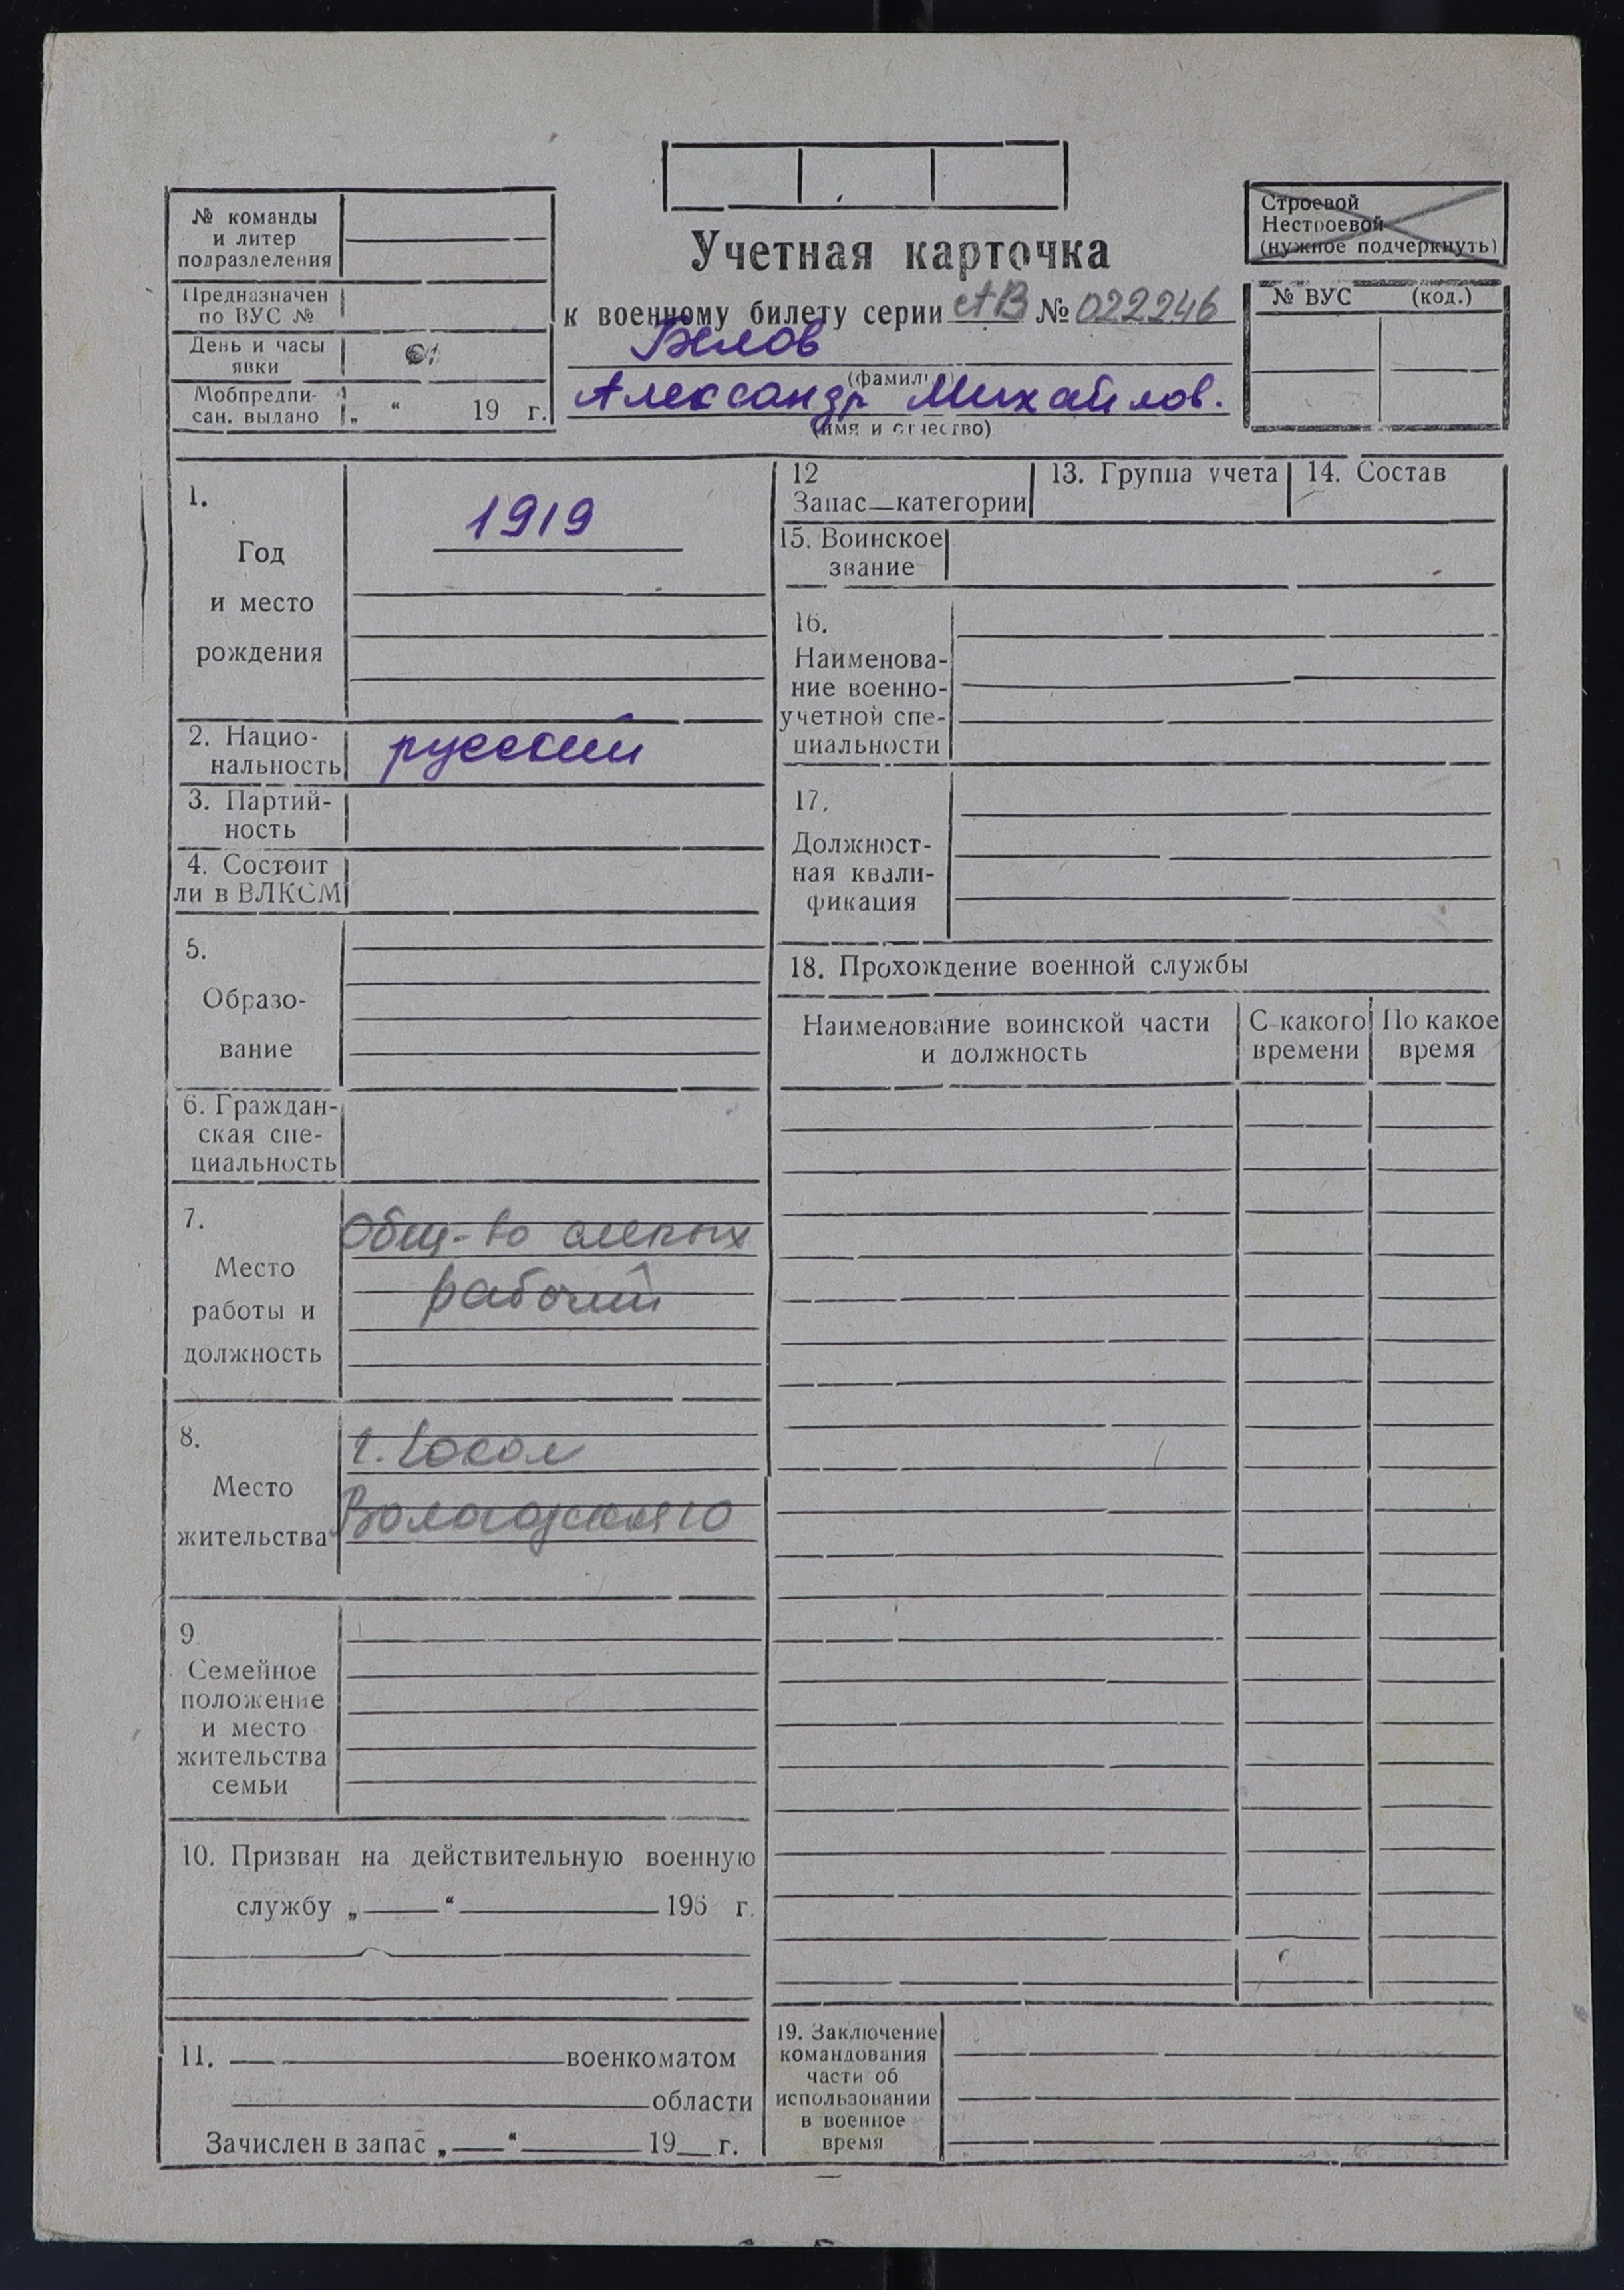 № команды
и литер
подразделения
Предназначен
по ВУС №
День и часы
явки
Мобпредпи-
сан. выдано „ “ 19 г.
Учетная карточка
к военному билету серии АВ № 022246
Белов
(фамилия)
Александр Михайлов.
(имя и отчество)
Строевой
Нестроевой
(нужное подчеркнуть)
№ ВУС (код.)
1.
Год
и место
рождения
1919
2. Нацио-
нальность
русский
3. Партий-
ность
4. Состоит
ли в ВЛКСМ
5.
Образо-
вание
6. Граждан-
ская спе-
циальность
7.
Место
работы и
должность
Общ-во слепых
рабочий
8.
Место
жительства
г. Сокол
Вологодская 10
9.
Семейное
положение
и место
жительства
семьи
10. Призван на действительную военную
службу „ “ 195 г.
11. военкоматом
области
Зачислен в запас „ “ 19 г.
12
Запас—категории
13. Группа учета
14. Состав
15. Воинское
звание
16.
Наименова-
ние военно-
учетной спе-
циальности
17.
Должност-
ная квали-
фикация
18. Прохождение военной службы
Наименование воинской части
и должность
С какого
времени
По какое
время
19. Заключение
командования
части об
использовании
в военное
время